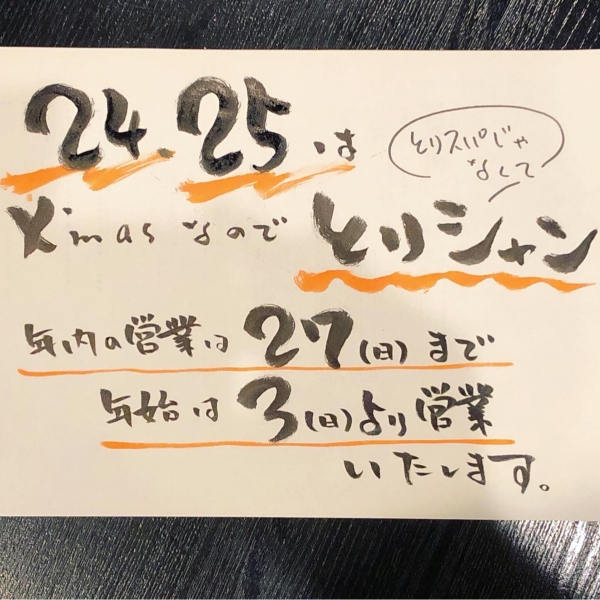 24.25は
とりスパじゃ
なくて
X'masなので とりシャン
年内の営業は27(日)まで
年始は3(日)より営業
いたします。